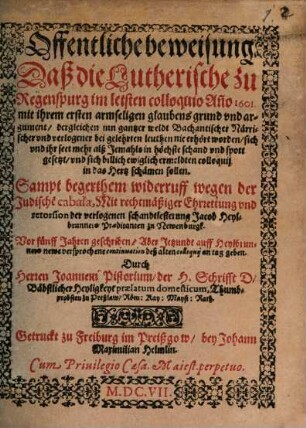 Offentliche beweisung
Daß die Lutherische zu
Regenspurg im letsten colloquio Año 1601.
mit ihrem ersten armseligen glaubens grund vnd ar-
gument/ dergleichen inn gantzer weldt Bachantischer Närri-
scher vnd verlogener bei gelehrten leuthen nie erhört worden/ sich
vnd ihr sect mehr alß Jemahls in höchste schand vnd spott
gesetzt/ vnd sich billich ewiglich ermelten colloquij
in das Hertz schämen sollen.
Sampt begerthem widerruff wegen der
Judischē cabala, Mit rechtmäßiger Ehrrettung vnd
retorsion der verlogenen schandtlesterung Jacob Heyl-
brunners Prædicanten zu Newenburgk.
Vor fünff Jahren geschriben/ Aber Jetzundt auff Heylbrun-
ners newe versprochene continuation deß alten colloquij an tag geben.
Durch
Herren Joannem Pistorium, der H. Schrifft D/
Bäbstlicher Heyligkeyt prælatum domesticum, Thumb-
probsten zu Preßlaw/ Röm: Kay: Mayst: Rath.
Getruckt zu Freiburg im Preißgow/ bey Johann
Maximilian Helmlin.
Cum Privilegio Cæsa. Maiest. perpetuo.
M.DC.VII.